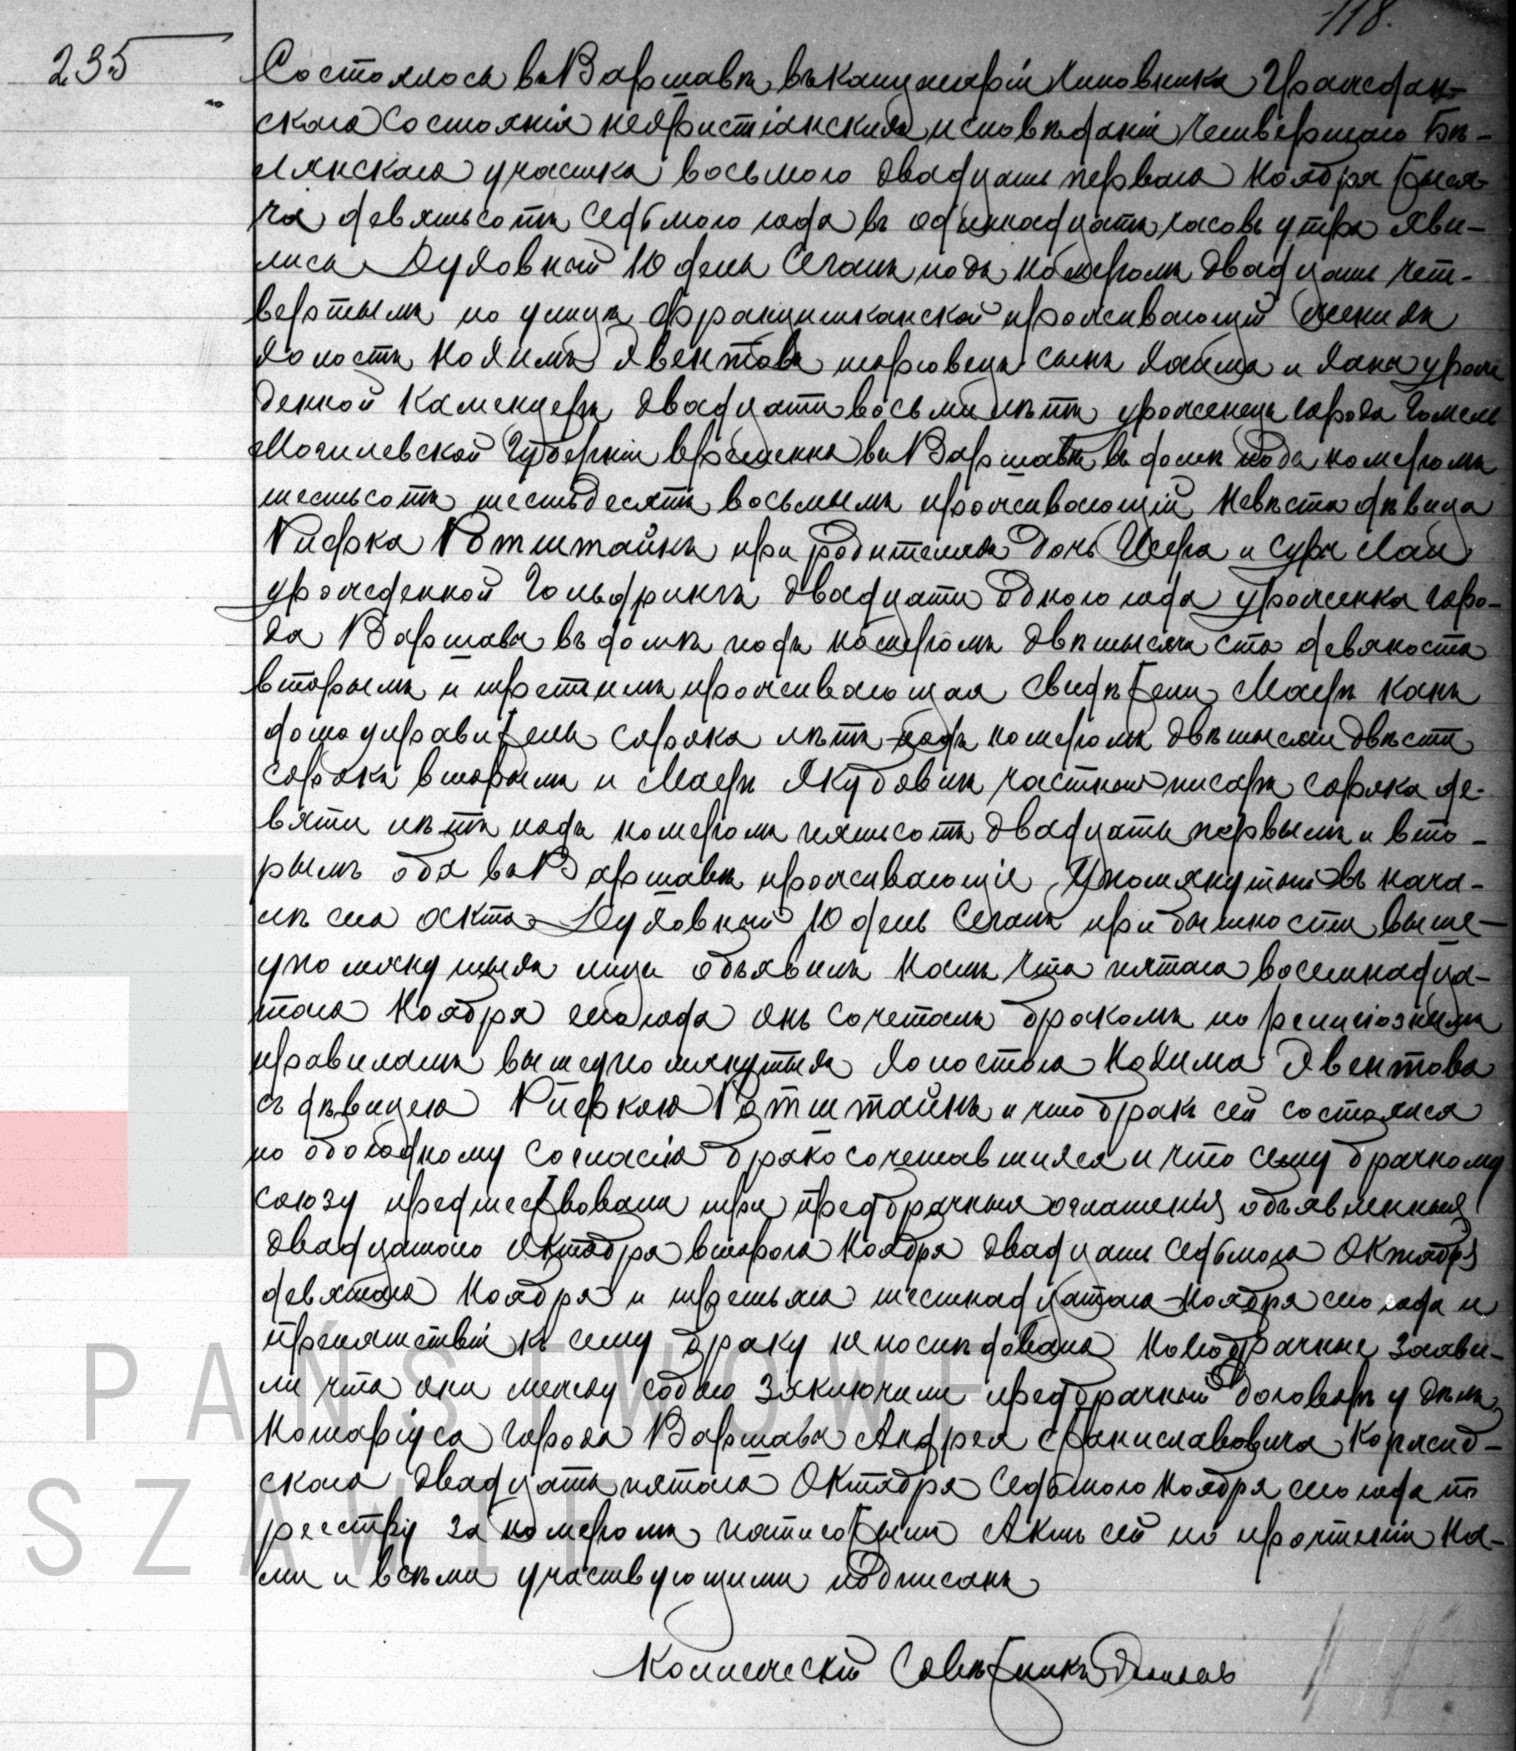 118.
235
Состоялось въ Варшавѣ въ канцеляріи Чиновника Граждан-
скаго Состоянія нехристіанскихъ исповѣданій Четвертаго Бѣ-
лянскаго участка восьмого двадцать перваго Ноября тыся-
ча девятьсотъ седьмого года въ одиннадцать часовъ утра яви-
лись Духовный Юдель Сегаль подъ номеромъ двадцать чет-
вертымъ по улицѣ Францишканской проживающій женихъ
холостъ Нохимъ Явентовъ торговецъ сынъ Хаима и Ханы урож
денной Камендеръ двадцати восьми лѣтъ уроженецъ города Гомель
Могилевской Губерніи временно въ Варшавѣ въ домѣ подъ номеромъ
шестьсотъ шестьдесятъ восьмымъ проживающій невѣста дѣвица
Рифка Ротштайнъ при родителяхъ дочь Исера и Суры Лаи
урожденной Гольдрингъ двадцати одного года уроженка горо-
да Варшавы въ домѣ подъ номеромъ двѣ тысячи сто девяносто
вторымъ и третьимъ проживающая свидѣтели Маеръ Канъ
домоуправитель сорока лѣтъ подъ номеромъ двѣ тысячи двѣсти
сорокъ вторымъ и Маеръ Якубовичъ частный писарь сорока де-
вяти лѣтъ подъ номеромъ пятьсотъ двадцать первымъ и вто-
рымъ оба въ Варшавѣ проживающіе Упомянутый въ нача-
лѣ сего акта Духовный Юдель Сегаль при бытности выше-
упомянутыхъ лицъ объявилъ намъ что пятаго восемнадца-
таго Ноября сего года онъ сочеталъ бракомъ по религіознымъ
правиламъ вышеупомянутыхъ холостого Нохима Явентова
съ дѣвицею Рифкою Ротштайнъ и что бракъ сей состоялся
по обоюдному согласію бракосочетавшихся и что сему брачному
союзу предшествовали три предбрачныя оглашенія объявленныя
двадцатого Октября второго Ноября двадцать седьмого Октября
девятаго Ноября и третьяго шестнадцатаго Ноября сего года и
препятствій къ сему браку не послѣдовало Новобрачные заяви-
ли что они между собою заключили предбрачный договоръ у дѣлъ
Нотаріуса города Варшавы Андрея Станиславовича
скаго двадцать пятаго Октября седьмого Ноября сего года по
реестру за номеромъ Актъ сей по прочтеніи на-
ми и всѣми участвующими подписанъ
Коллежскій Совѣтникъ
PAŃSTWOWE
SZAWIE